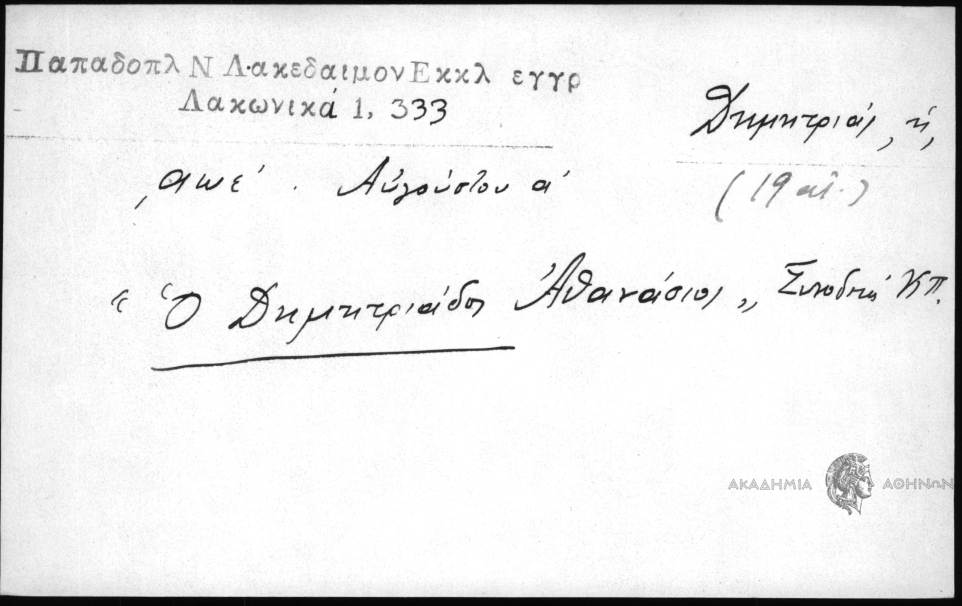 Παπαδοπλ Ν Λακεδαιμον Εκκλ εγγρ
Λακωνικά 1, 333
Δημητριάς, ἡ,
͵αωε΄. Αὐγούστου α΄
(19 αἰ.)
“Ὁ Δημητριάδος Ἀθανάσιος„ Συνοδικά ΚΠ.
ΑΚΑΔΗΜΙΑ ΑΘΗΝΩΝ